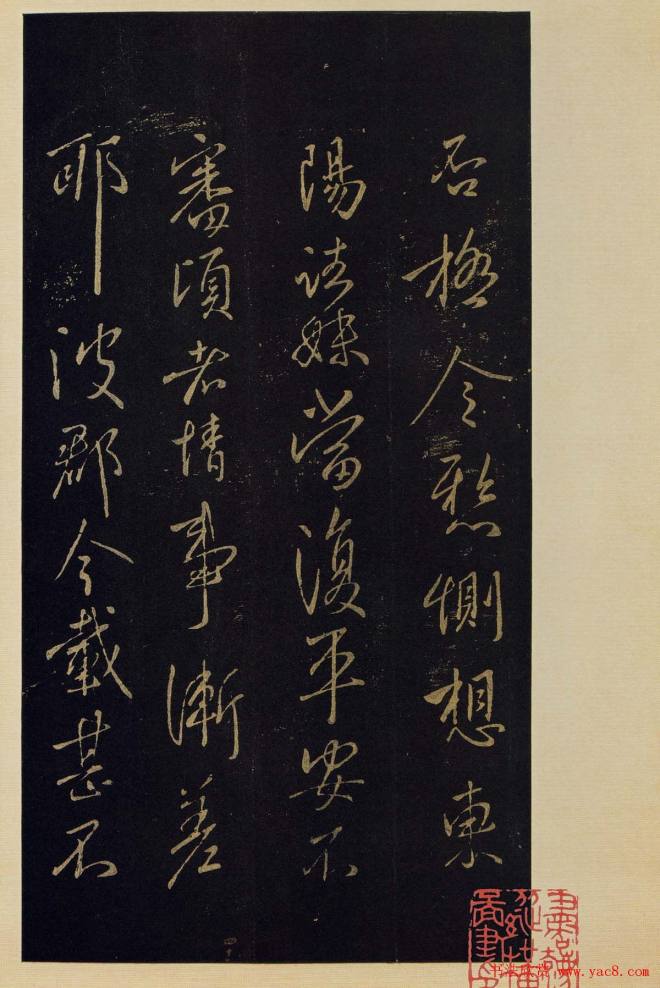 否極令愁惻想東
陽諸妹當復平安不
審頃者情事漸差
耶彼郡今載甚不
四十
书法欣赏 www.yac8.com